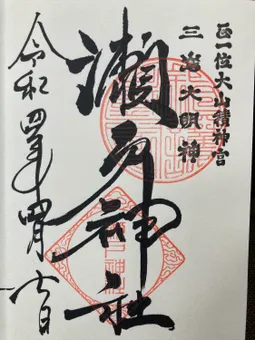 正一位大山積神宮
三島大明神
瀬戸神社
令和四年四月六日